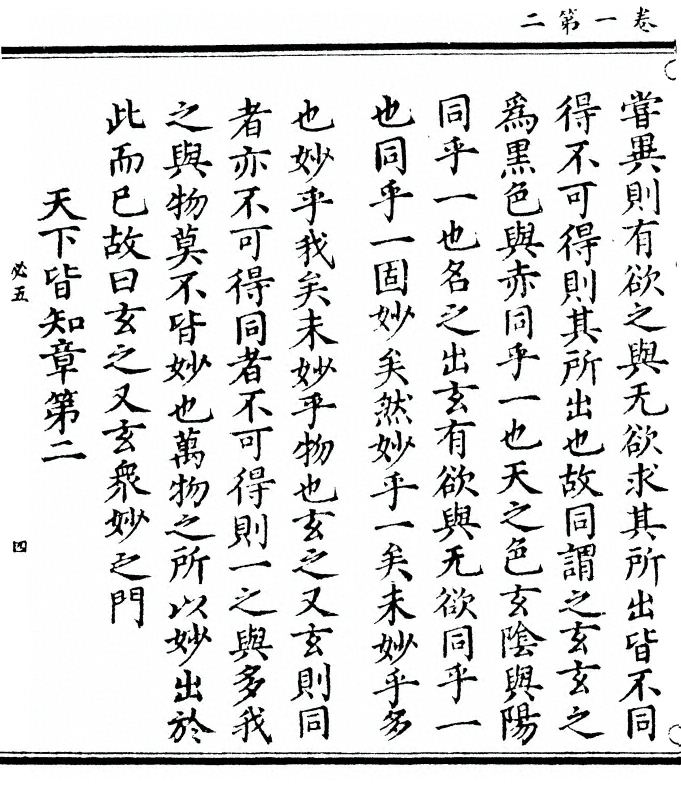 卷一第二
嘗異則有欲之與无欲求其所出皆不同
得不可得則其所出也故同謂之玄玄之
爲黑色與赤同乎一也天之色玄陰與陽
同乎一也名之出玄有欲與无欲同乎一
也同乎一固妙矣然妙乎一矣未妙乎多
也妙乎我矣未妙乎物也玄之又玄則同
者亦不可得同者不可得則一之與多我
之與物莫不皆妙也萬物之所以妙出於
此而已故曰玄之又玄衆妙之門
天下皆知章第二
必五
四